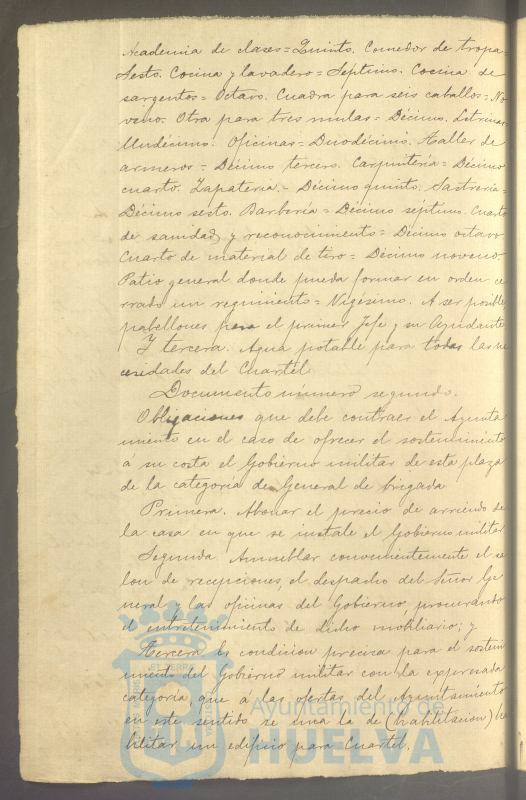 Academia de clases= Quinto. Comedor de tropa=
Sesto. Cocina y lavadero= Séptimo. Cocina de
sargentos= Octavo. Cuadra para seis caballos= No
veno. Otra para tres mulas= Décimo. Letrinas
Undécimo. Oficinas= Duodécimo. Taller de
armeros= Décimo tercero. Carpintería= Décimo
cuarto. Zapatería.= Décimo quinto. Sastrería=
Décimo sesto. Barbería= Décimo séptimo. Cuarto
de sanidad y reconocimiento= Décimo octavo
Cuarto de material de tiro= Décimo noveno
Patio general donde pueda formar en orden ce
rrado un regimiento= Vigésimo. A ser posible
pabellones para el primer Jefe y su Ayudante
Y tercera. Agua potable para todas las ne
cesidades del Cuartel
Documento número segundo.
Obligaciones que debe contraer el Ayunta
miento en el caso de ofrecer el sostenimiento
á su costa el Gobierno militar de esta plaza
de la categoría de General de brigada
Primera. Abonar el precio de arriendo de
la casa en que se instale el Gobierno militar
Segunda Amueblar convenientemente el sa
lon de recepciones, el despacho del Señor Ge
neral y las oficinas del Gobierno, procurando
el entretenimiento de dicho mobiliario; y
Tercera Es condicion precisa para el sosteni
miento del Gobierno militar con la expresada
categoría, que á las ofertas del Ayuntamiento
en este sentido se una la de (habilitacion) ha
bilitar un edificio para Cuartel.
Ayuntamiento de
HUELVA